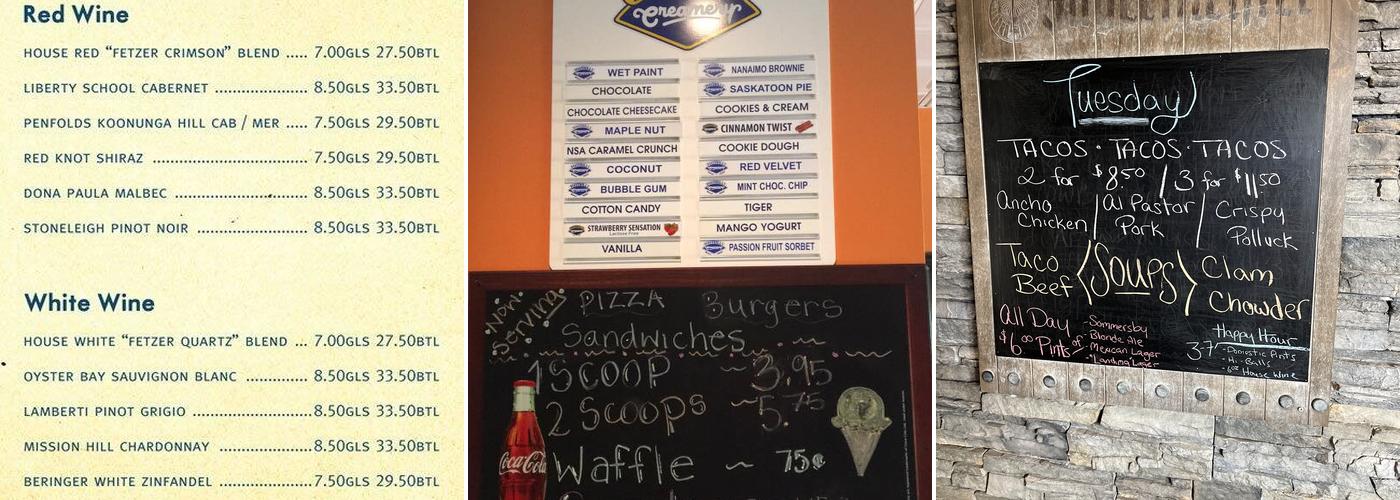 Red Wine
HOUSE RED "FETZER CRIMSON" BLEND ..... 7.00GLS 27.50BTL
LIBERTY SCHOOL CABERNET ................. 8.50GLS 33.50BTL
PENFOLDS KOONUNGA HILL CAB / MER ..... 7.50GLS 29.50BTL
RED KNOT SHIRAZ ............................. 7.50GLS 29.50BTL
DONA PAULA MALBEC ......................... 8.50GLS 33.50BTL
STONELEIGH PINOT NOIR ..................... 8.50GLS 33.50BTL
White Wine
HOUSE WHITE "FETZER QUARTZ" BLEND ... 7.00GLS 27.50BTL
OYSTER BAY SAUVIGNON BLANC ............. 8.50GLS 33.50BTL
LAMBERTI PINOT GRIGIO ..................... 8.50GLS 33.50BTL
MISSION HILL CHARDONNAY ................. 8.50GLS 33.50BTL
BERINGER WHITE ZINFANDEL ................. 7.50GLS 29.50BTL
Creamery
WET PAINT
CHOCOLATE
CHOCOLATE CHEESECAKE
MAPLE NUT
NSA CARAMEL CRUNCH
COCONUT
BUBBLE GUM
COTTON CANDY
STRAWBERRY SENSATION
Lactose Free
VANILLA
NANAIMO BROWNIE
SASKATOON PIE
COOKIES & CREAM
CINNAMON TWIST
COOKIE DOUGH
RED VELVET
MINT CHOC. CHIP
TIGER
MANGO YOGURT
PASSION FRUIT SORBET
Now Serving
PIZZA Burgers
Sandwiches
1 Scoop ~ 3.95
2 Scoops ~ 5.75
Waffle ~ 75¢
Coca-Cola
Tuesday
TACOS · TACOS · TACOS
2 for $8.50 / 3 for $11.50
Ancho Chicken / al Pastor Pork / Crispy Polluck
Taco Beef < Soups > Clam Chowder
All Day
$6.00 Pints of
- Sommersby
- Blonde Ale
- Mexican Lager
- Landing Lager
Happy Hour
3-7
- Domestic Pints
- Hi-Balls
- 6oz House Wine